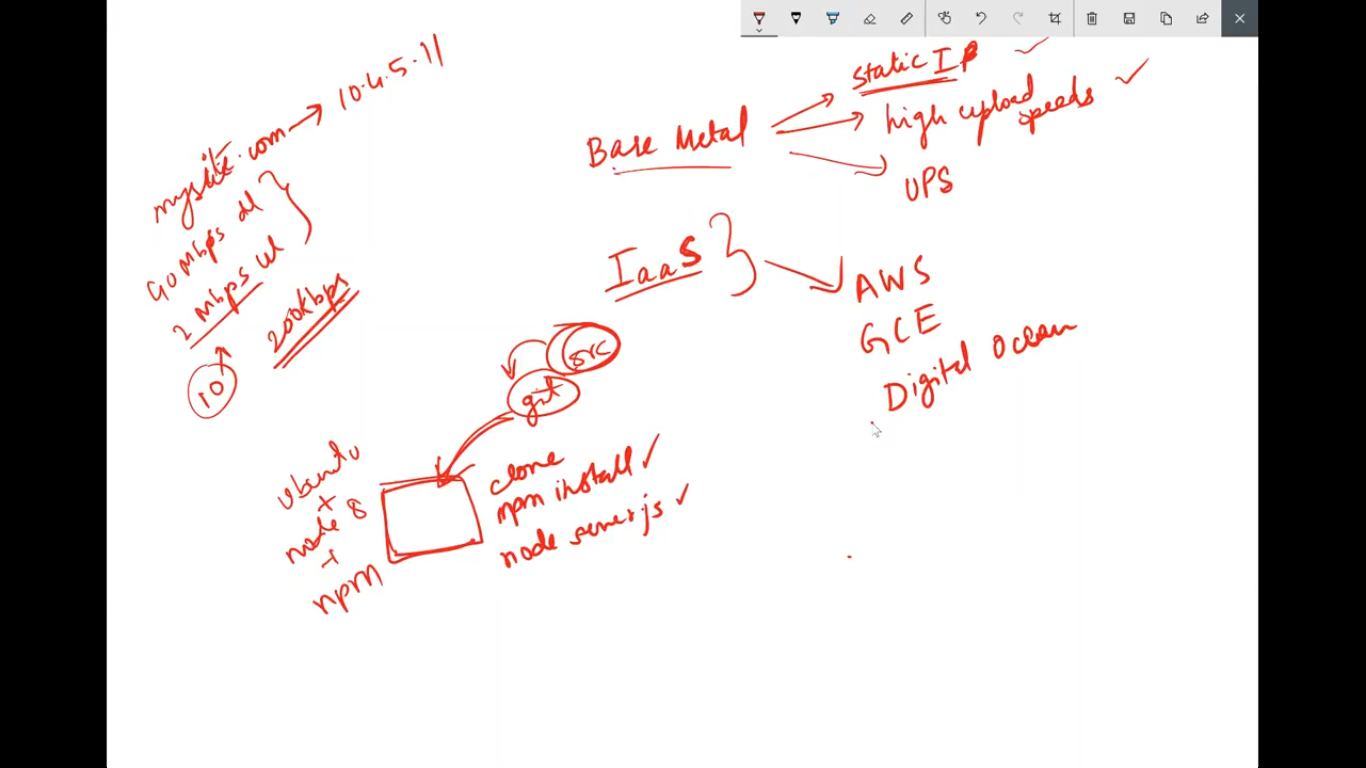 mysite.com → 10.4.5.11
40 Mbps dl
2 Mbps ul
200kbps
10
Base Metal
Static IP
high upload
speeds
UPS
IaaS
AWS
GCE
Digital Ocean
src
git
ubuntu
+
node 8
+
npm
clone
npm install ✓
node server.js ✓